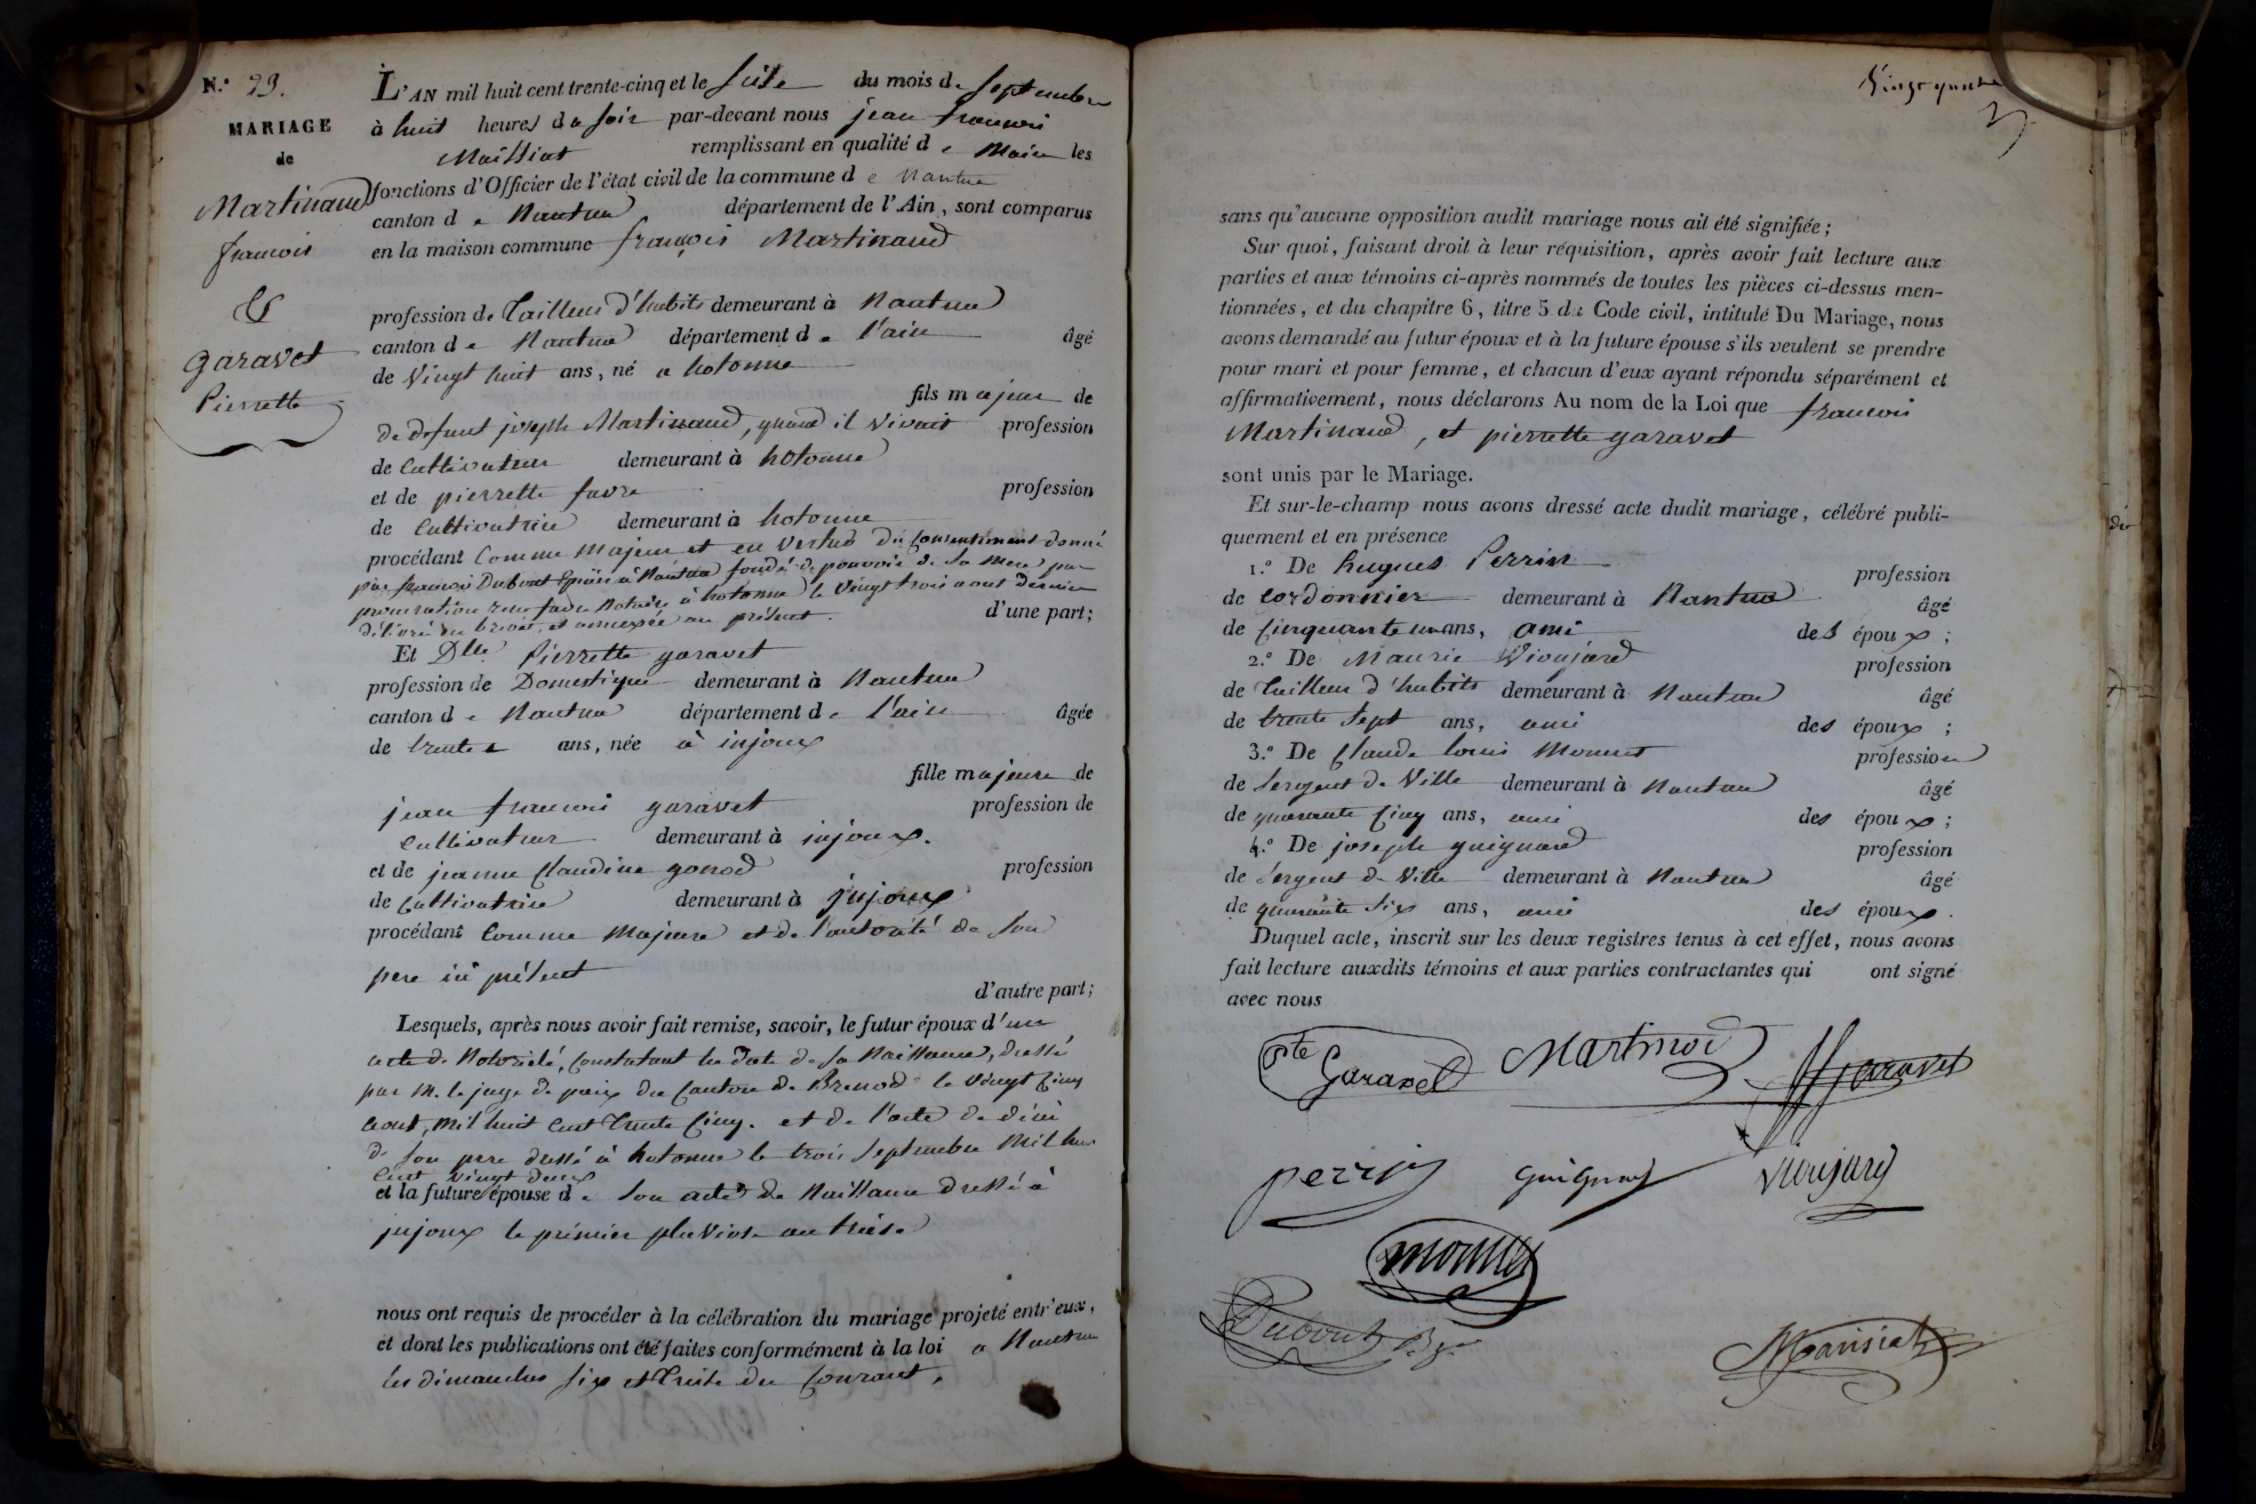 N.° 23.
MARIAGE
de
Martinaud
francois
&
garavet
Pierrette
L'AN mil huit cent trente-cinq et le seize du mois de septembre
à huit heures du soir par-devant nous jean francois
Maissiat remplissant en qualité de Maire les
fonctions d'Officier de l'état civil de la commune de Nantua
canton de Nantua département de l'Ain, sont comparus
en la maison commune françois Martinaud
profession de Tailleur d'habits demeurant à Nantua
canton de Nantua département de l'ain âgé
de Vingt huit ans, né a hotonne
fils majeur de
de defunt joseph Martinaud, quand il vivait profession
de Cultivateur demeurant à hotonne
et de pierrette favre profession
de Cultivatrice demeurant à hotonne
procédant Comme Majeur et en Vertu du Consentement donné
par francois Dubout Epicier à Nantua fondé de pouvoir de sa mere par
procuration reçue favre Notaire à hotonne le Vingt trois aout dernier
délivré en brevet, et annexée au présent. d'une part;
Et Dlle Pierrette garavet
profession de Domestique demeurant à Nantua
canton de Nantua département de l'ain âgée
de trente ans, née à injoux
fille majeure de
jean francois garavet profession de
Cultivateur demeurant à injoux.
et de jeanne Claudine gonod profession
de Cultivatrice demeurant à jnjoux
procédant Comme Majeure et de l'autorité de son
pere ici présent
d'autre part;
Lesquels, après nous avoir fait remise, savoir, le futur époux d'un
acte de Notoriété, Constatant la date de sa Naissance, dressé
par M. le juge de paix du Canton de Brenod le Vingt Cinq
aout, mil huit Cent Trente Cinq. et de l'acte de décès
de son pere dressé à hotonne le trois septembre Mil huit
Cent Vingt deux
et la future épouse de son acte de Naissance dressé à
jnjoux le prémier pluviose an treise
nous ont requis de procéder à la célébration du mariage projeté entr'eux,
et dont les publications ont été faites conformément à la loi a Nantua
les dimanches six et treise du Courant,
sans qu'aucune opposition audit mariage nous ait été signifiée;
Sur quoi, faisant droit à leur réquisition, après avoir fait lecture aux
parties et aux témoins ci-après nommés de toutes les pièces ci-dessus men-
tionnées, et du chapitre 6, titre 5 du Code civil, intitulé Du Mariage, nous
avons demandé au futur époux et à la future épouse s'ils veulent se prendre
pour mari et pour femme, et chacun d'eux ayant répondu séparément et
affirmativement, nous déclarons Au nom de la Loi que francois
Martinaud, et pierrette garavet
sont unis par le Mariage.
Et sur-le-champ nous avons dressé acte dudit mariage, célébré publi-
quement et en présence
1.° De hugues Perrin profession
de Cordonnier demeurant à Nantua âgé
de Cinquante un ans, ami des époux;
2.° De Maurie Vioujard profession
de Tailleur d'habits demeurant à Nantua âgé
de trente sept ans, ami des époux;
3.° De Claude Louis Monnet profession
de Sergent de Ville demeurant à Nantua âgé
de quarante Cinq ans, ami des époux;
4.° De joseph guignard profession
de Sergent de Ville demeurant à Nantua âgé
de quarante six ans, ami des époux.
Duquel acte, inscrit sur les deux registres tenus à cet effet, nous avons
fait lecture auxdits témoins et aux parties contractantes qui ont signé
avec nous
Pte Garavet Martinod garavet
perrin guignard vioujard
monnet
Dubout
Maissiat